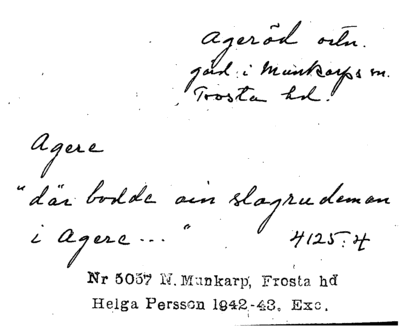 Ageröd ortn.
gård i Munkarps sn.
Frosta hd.
Agere
"där bodde ain slagrudeman
i Agere..."
4125:4
Nr 5037 N. Munkarp, Frosta hd
Helga Persson 1942-43, Exc.